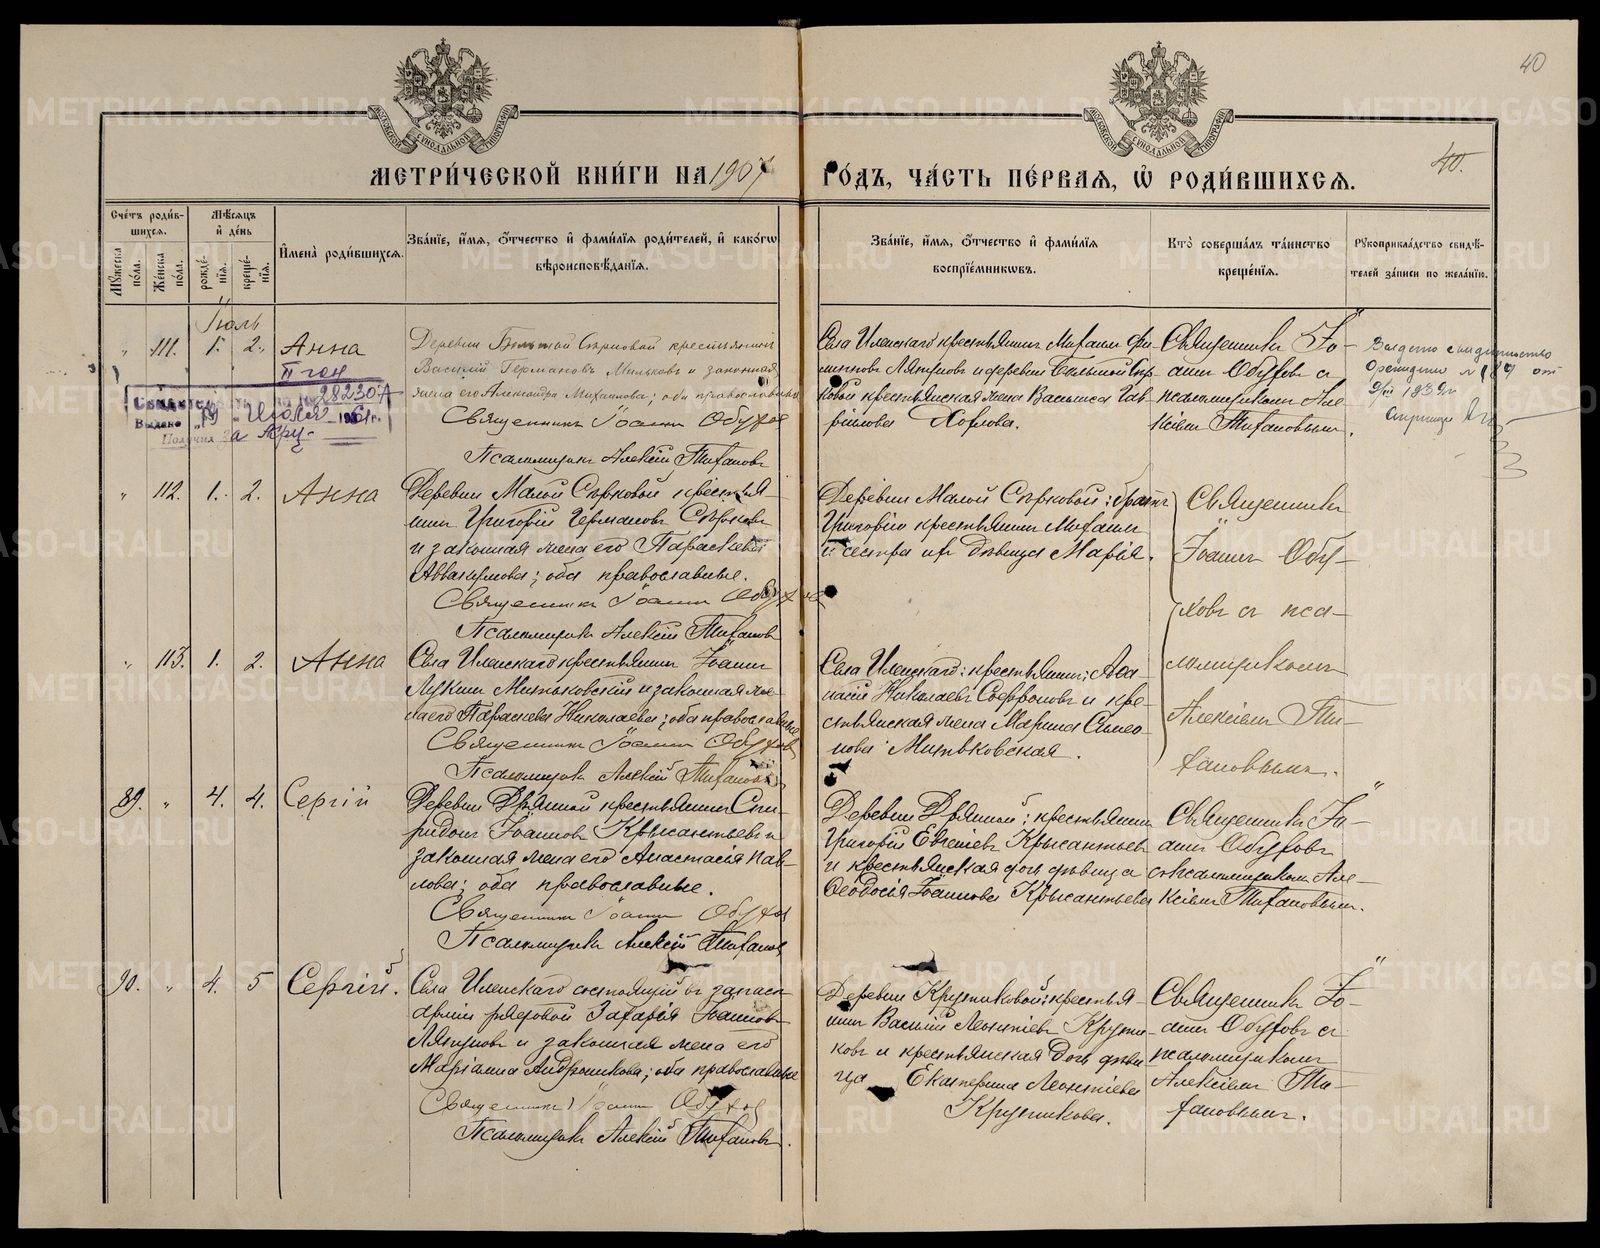 40
МЕТРИ́ЧЕСКОЙ КНИ́ГИ НА 1907 ГО́ДЪ, ЧА́СТЬ ПЕ́РВАѦ, Ѡ҆ РОДИ́ВШИХСѦ.
40.
МОСКОВСКОЙ СѴНОДАЛЬНОЙ ТИПОГРАФІИ
МОСКОВСКОЙ СѴНОДАЛЬНОЙ ТИПОГРАФІИ
Сче́тъ роди́в-
шихсѧ.
Мꙋ́жеска по́ла.
Же́нска по́ла.
Мѣ́сѧцъ
и҆ де́нь
рожде́-
нїѧ.
креще́-
нїѧ.
И҆мена̀ роди́вшихсѧ.
Зва́нїе, и҆́мѧ, ѻ҆́тчество и҆ фами́лїѧ роди́телей, и҆ како́гѡ
вѣроисповѣ́данїѧ.
Зва́нїе, и҆́мѧ, ѻ҆́тчество и҆ фами́лїѧ
воспрїе́мникѡвъ.
Кто̀ соверша́лъ та́инство
креще́нїѧ.
Рꙋкоприкла́дство свидѣ́-
телей за́писи по жела́нїю.
Іюль
" 111. 1. 2. Анна
Деревни Большой Сѣрковой крестьянинъ
Василій Германовъ Мильковъ и законная
жена его Александра Михаилова; оба православные
Священникъ Іоаннъ Обуховъ
Псаломщикъ Алексій Тихановъ
Села Иленскаго крестьянинъ Михаилъ Фи-
липповъ Ляпуновъ и деревни Большой Сѣр-
ковой крестьянская жена Васса Гав-
рілова
Священникъ Іо-
аннъ Обуховъ съ
псаломщикомъ Але-
ксіемъ Тихановымъ.
II ген
Свидетельство 28230 А
Выдано "19" Июля 1961 г.
Выдано свидетельство
№ 189 от
1939 г
" 112. 1. 2. Анна
Деревни Малой Сѣрковой крестья-
нинъ Григорій Германовъ Сѣрковъ
и законная жена его Параскева
Аввакумова; оба православные.
Священникъ Іоаннъ Обуховъ
Псаломщикъ Алексій Тихановъ
Деревни Малой Сѣрковой: братъ
Григорію крестьянинъ Михаилъ
и сестра их дѣвица Марія.
Священникъ
Іоаннъ Обу-
ховъ съ пса-
ломщикомъ
Алексіемъ Ти-
хановымъ.
" 113. 1. 2. Анна
Села Иленскаго крестьянинъ Іоаннъ
Лукинъ Митьковскій и законная же-
на его Параскева Николаева; оба православные
Священникъ Іоаннъ Обуховъ
Псаломщикъ Алексій Тихановъ
Села Иленскаго: крестьянинъ: Афа-
насій Николаевъ Софроновъ и кре-
стьянская жена Марина Симео-
нова Митьковская.
89. " 4. 4. Сергій
Деревни Дряной крестьянинъ Спи-
ридонъ Іоанновъ Крысантьевъ и
законная жена его Анастасія Пав-
лова; оба православные.
Священникъ Іоаннъ Обуховъ
Псаломщикъ Алексій Тихановъ
Деревни Дряной: крестьянинъ
Григорій Евгеніевъ Крысантьевъ
и крестьянская дочь дѣвица
Ѳеодосія Іоаннова Крысантьева
Священникъ Іо-
аннъ Обуховъ
съ псаломщикомъ Але-
ксіемъ Тихановымъ.
90. " 4. 5 Сергій.
Села Иленскаго состоящій въ запасѣ
арміи рядовой Захарія Іоанновъ
Ляпуновъ и законная жена его
Маріамна Андроникова; оба православные
Священникъ Іоаннъ Обуховъ
Псаломщикъ Алексій Тихановъ.
Деревни Крутиковой: крестья-
нинъ Василій Леонтіевъ Крути-
ковъ и крестьянская дочь дѣви-
ца Екатерина Леонтіева
Крутикова.
Священникъ Іо-
аннъ Обуховъ съ
псаломщикомъ
Алексіемъ Ти-
хановымъ.
METRIKI.GASO-URAL.RU